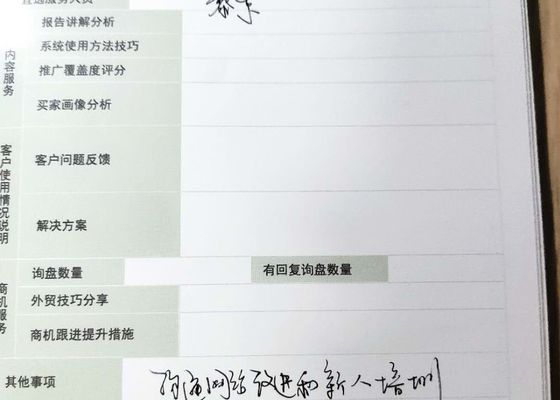 报告讲解分析
系统使用方法技巧
内容服务
推广覆盖度评分
买家画像分析
客户使用情况说明
客户问题反馈
解决方案
询盘数量 有回复询盘数量
商机服务
外贸技巧分享
商机跟进提升措施
其他事项 网站改进和新人培训